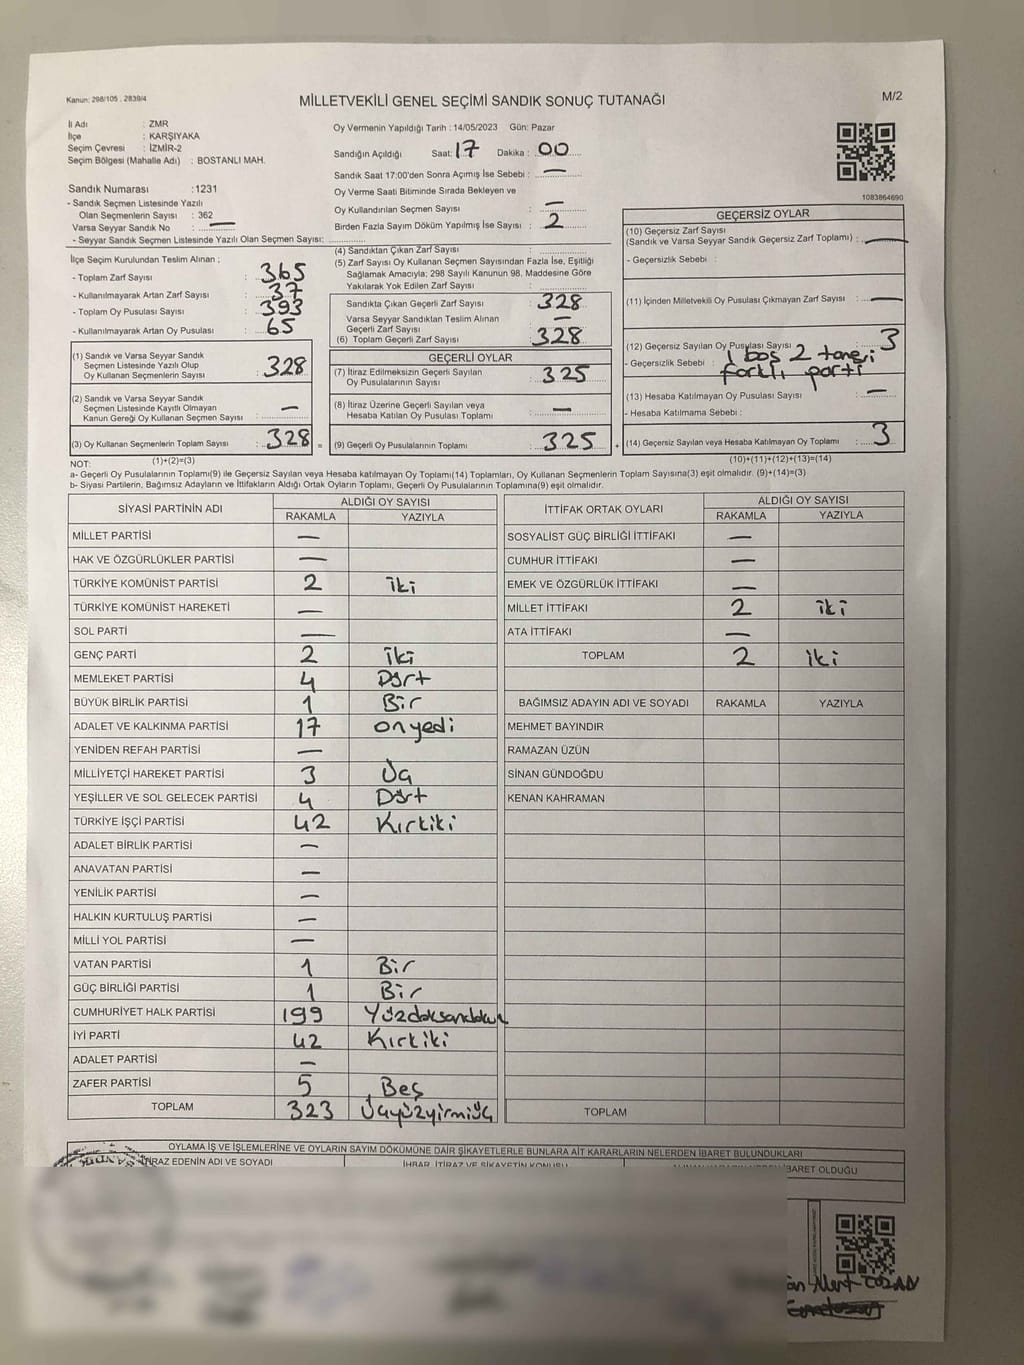 Kanun: 298/105 , 2839/4
MİLLETVEKİLİ GENEL SEÇİMİ SANDIK SONUÇ TUTANAĞI
M/2
İl Adı : ZMR
İlçe : KARŞIYAKA
Seçim Çevresi : İZMİR-2
Seçim Bölgesi (Mahalle Adı) : BOSTANLI MAH.
Oy Vermenin Yapıldığı Tarih : 14/05/2023 Gün: Pazar
Sandığın Açıldığı Saat: 17 Dakika : 00
Sandık Saat 17:00'den Sonra Açılmış İse Sebebi : —
Oy Verme Saati Bitiminde Sırada Bekleyen ve
Oy Kullandırılan Seçmen Sayısı : —
Birden Fazla Sayım Döküm Yapılmış İse Sayısı : 2
1083864690
Sandık Numarası :1231
- Sandık Seçmen Listesinde Yazılı
Olan Seçmenlerin Sayısı : 362
Varsa Seyyar Sandık No : —
- Seyyar Sandık Seçmen Listesinde Yazılı Olan Seçmen Sayısı:
İlçe Seçim Kurulundan Teslim Alınan ;
- Toplam Zarf Sayısı : 365
- Kullanılmayarak Artan Zarf Sayısı : 37
- Toplam Oy Pusulası Sayısı : 393
- Kullanılmayarak Artan Oy Pusulası : 65
(1) Sandık ve Varsa Seyyar Sandık
Seçmen Listesinde Yazılı Olup
Oy Kullanan Seçmenlerin Sayısı : 328
(2) Sandık ve Varsa Seyyar Sandık
Seçmen Listesinde Kayıtlı Olmayan
Kanun Gereği Oy Kullanan Seçmen Sayısı : —
(3) Oy Kullanan Seçmenlerin Toplam Sayısı : 328 =
(1)+(2)=(3)
(4) Sandıktan Çıkan Zarf Sayısı :
(5) Zarf Sayısı Oy Kullanan Seçmen Sayısından Fazla İse, Eşitliği
Sağlamak Amacıyla; 298 Sayılı Kanunun 98. Maddesine Göre
Yakılarak Yok Edilen Zarf Sayısı :
Sandıkta Çıkan Geçerli Zarf Sayısı : 328
Varsa Seyyar Sandıktan Teslim Alınan
Geçerli Zarf Sayısı : —
(6) Toplam Geçerli Zarf Sayısı : 328
GEÇERLİ OYLAR
(7) İtiraz Edilmeksizin Geçerli Sayılan
Oy Pusulalarının Sayısı : 325
(8) İtiraz Üzerine Geçerli Sayılan veya
Hesaba Katılan Oy Pusulası Toplamı : —
(9) Geçerli Oy Pusulalarının Toplamı : 325 +
GEÇERSİZ OYLAR
(10) Geçersiz Zarf Sayısı
(Sandık ve Varsa Seyyar Sandık Geçersiz Zarf Toplamı) : —
- Geçersizlik Sebebi :
(11) İçinden Milletvekili Oy Pusulası Çıkmayan Zarf Sayısı : —
(12) Geçersiz Sayılan Oy Pusulası Sayısı : 3
- Geçersizlik Sebebi : 1 boş 2 tanesi
farklı parti
(13) Hesaba Katılmayan Oy Pusulası Sayısı : —
- Hesaba Katılmama Sebebi :
(14) Geçersiz Sayılan veya Hesaba Katılmayan Oy Toplamı : 3
(10)+(11)+(12)+(13)=(14)
NOT:
a- Geçerli Oy Pusulalarının Toplamı(9) ile Geçersiz Sayılan veya Hesaba katılmayan Oy Toplamı(14) Toplamları, Oy Kullanan Seçmenlerin Toplam Sayısına(3) eşit olmalıdır. (9)+(14)=(3)
b- Siyasi Partilerin, Bağımsız Adayların ve İttifakların Aldığı Ortak Oyların Toplamı, Geçerli Oy Pusulalarının Toplamına(9) eşit olmalıdır.
SİYASİ PARTİNİN ADI ALDIĞI OY SAYISI
RAKAMLA YAZIYLA
MİLLET PARTİSİ —
HAK VE ÖZGÜRLÜKLER PARTİSİ —
TÜRKİYE KOMÜNİST PARTİSİ 2 iki
TÜRKİYE KOMÜNİST HAREKETİ —
SOL PARTİ —
GENÇ PARTİ 2 iki
MEMLEKET PARTİSİ 4 Dört
BÜYÜK BİRLİK PARTİSİ 1 Bir
ADALET VE KALKINMA PARTİSİ 17 onyedi
YENİDEN REFAH PARTİSİ —
MİLLİYETÇİ HAREKET PARTİSİ 3 Üç
YEŞİLLER VE SOL GELECEK PARTİSİ 4 Dört
TÜRKİYE İŞÇİ PARTİSİ 42 Kırkiki
ADALET BİRLİK PARTİSİ —
ANAVATAN PARTİSİ —
YENİLİK PARTİSİ —
HALKIN KURTULUŞ PARTİSİ —
MİLLİ YOL PARTİSİ —
VATAN PARTİSİ 1 Bir
GÜÇ BİRLİĞİ PARTİSİ 1 Bir
CUMHURİYET HALK PARTİSİ 199 Yüzdoksandokuz
İYİ PARTİ 42 Kırkiki
ADALET PARTİSİ —
ZAFER PARTİSİ 5 Beş
TOPLAM 323 Üçyüzyirmiüç
İTTİFAK ORTAK OYLARI ALDIĞI OY SAYISI
RAKAMLA YAZIYLA
SOSYALİST GÜÇ BİRLİĞİ İTTİFAKI —
CUMHUR İTTİFAKI —
EMEK VE ÖZGÜRLÜK İTTİFAKI —
MİLLET İTTİFAKI 2 iki
ATA İTTİFAKI —
TOPLAM 2 iki
BAĞIMSIZ ADAYIN ADI VE SOYADI RAKAMLA YAZIYLA
MEHMET BAYINDIR
RAMAZAN ÜZÜN
SİNAN GÜNDOĞDU
KENAN KAHRAMAN
TOPLAM
OYLAMA İŞ VE İŞLEMLERİNE VE OYLARIN SAYIM DÖKÜMÜNE DAİR ŞİKAYETLERLE BUNLARA AİT KARARLARIN NELERDEN İBARET BULUNDUKLARI
İTİRAZ EDENİN ADI VE SOYADI İHBAR, İTİRAZ VE ŞİKAYETİN KONUSU İBARET OLDUĞU